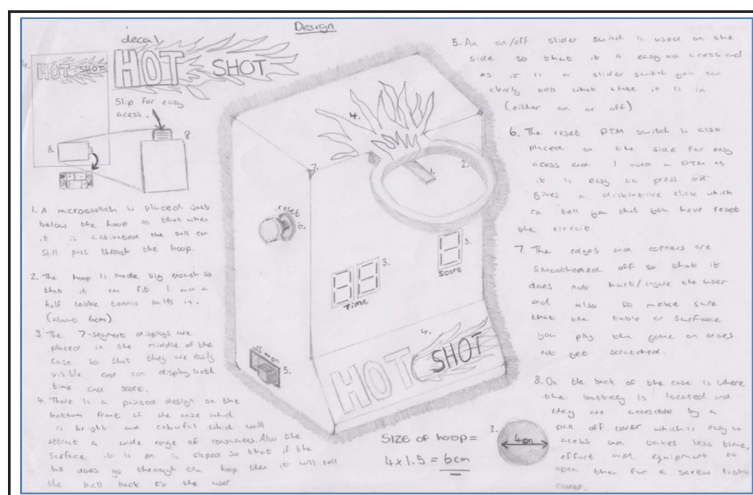 Design
decal
HOT SHOT
HOT SHOT
Slip for easy
acess.
8
8.
1. A microswitch is placed just
below the hoop so that when
it is activated the ball can
still pass through the hoop.
2. The hoop is made big enough so
that it can fit 1 and a
half table tennis balls in.
(about 6cm)
3. The 7-segment displays are
placed in the middle of the
case so that they are easily
visible and can display both
time and score.
4. There is a painted design on the
bottom front of the case which
is bright and colourful which will
attract a wide range of consumers. Also the
surface it is on is sloped so that if the
ball does go through the hoop then it will roll
the ball back to the user
4.
2.
1.
7.
reset
6.
3.
Time
3.
Score
off on
5.
4.
HOT SHOT
SIZE of hoop =
4 x 1.5 = 6cm
5. An on/off slider switch is used on the
side so that it is easy to acess and
as it is a slider switch you can
clearly tell what state it is in
(either on or off)
6. The reset PTM switch is also
placed on the side for easy
acess and I used a PTM as
it is easy to press and
gives a distinctive click which
can tell you that you have reset
the circuit
7. The edges and corners are
smoothened off so that it
does not hurt/injure the user
and also to make sure
that the table or surface
you play the game on does
not get scratched.
8. On the back of the case is where
the battery is located and
they are accessible by a
pull off cover which is easy to
acess and takes less time,
effort and equipment to
open than for a screw tight
cover.
2.
4cm